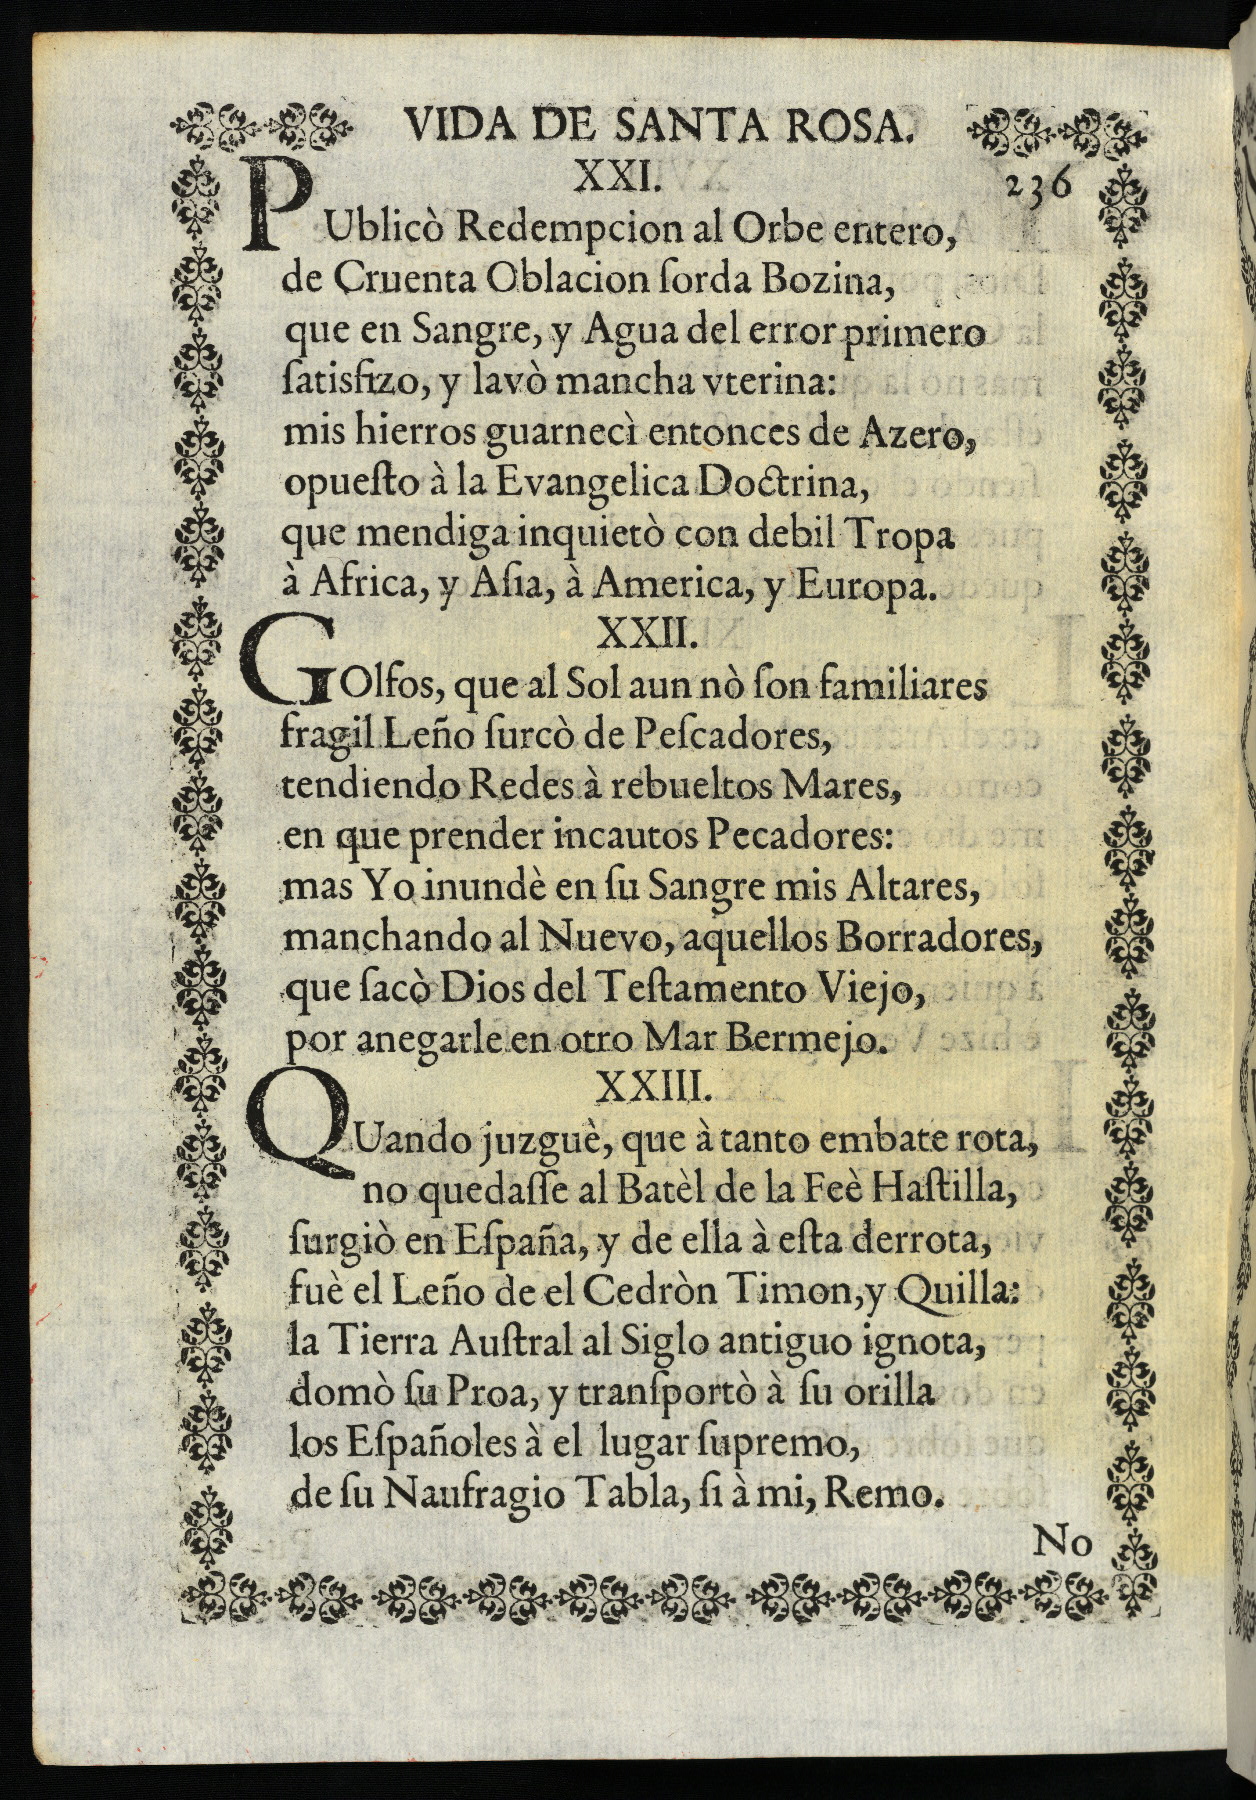 VIDA DE SANTA ROSA.
XXI.
236
PUblicò Redempcion al Orbe entero,
de Cruenta Oblacion ſorda Bozina,
que en Sangre, y Agua del error primero
ſatisfizo, y lavò mancha vterina:
mis hierros guarnecì entonces de Azero,
opueſto à la Evangelica Doctrina,
que mendiga inquietò con debil Tropa
à Africa, y Aſia, à America, y Europa.
XXII.
GOlfos, que al Sol aun nò ſon familiares
fragil Leño ſurcò de Peſcadores,
tendiendo Redes à rebueltos Mares,
en que prender incautos Pecadores:
mas Yo inundè en ſu Sangre mis Altares,
manchando al Nuevo, aquellos Borradores,
que ſacò Dios del Teſtamento Viejo,
por anegarle en otro Mar Bermejo.
XXIII.
QUando juzguè, que à tanto embate rota,
no quedaſſe al Batèl de la Feè Haſtilla,
ſurgiò en Eſpaña, y de ella à eſta derrota,
fuè el Leño de el Cedròn Timon,y Quilla:
la Tierra Auſtral al Siglo antiguo ignota,
domò ſu Proa, y tranſportò à ſu orilla
los Eſpañoles à el lugar ſupremo,
de ſu Naufragio Tabla, ſi à mi, Remo.
No